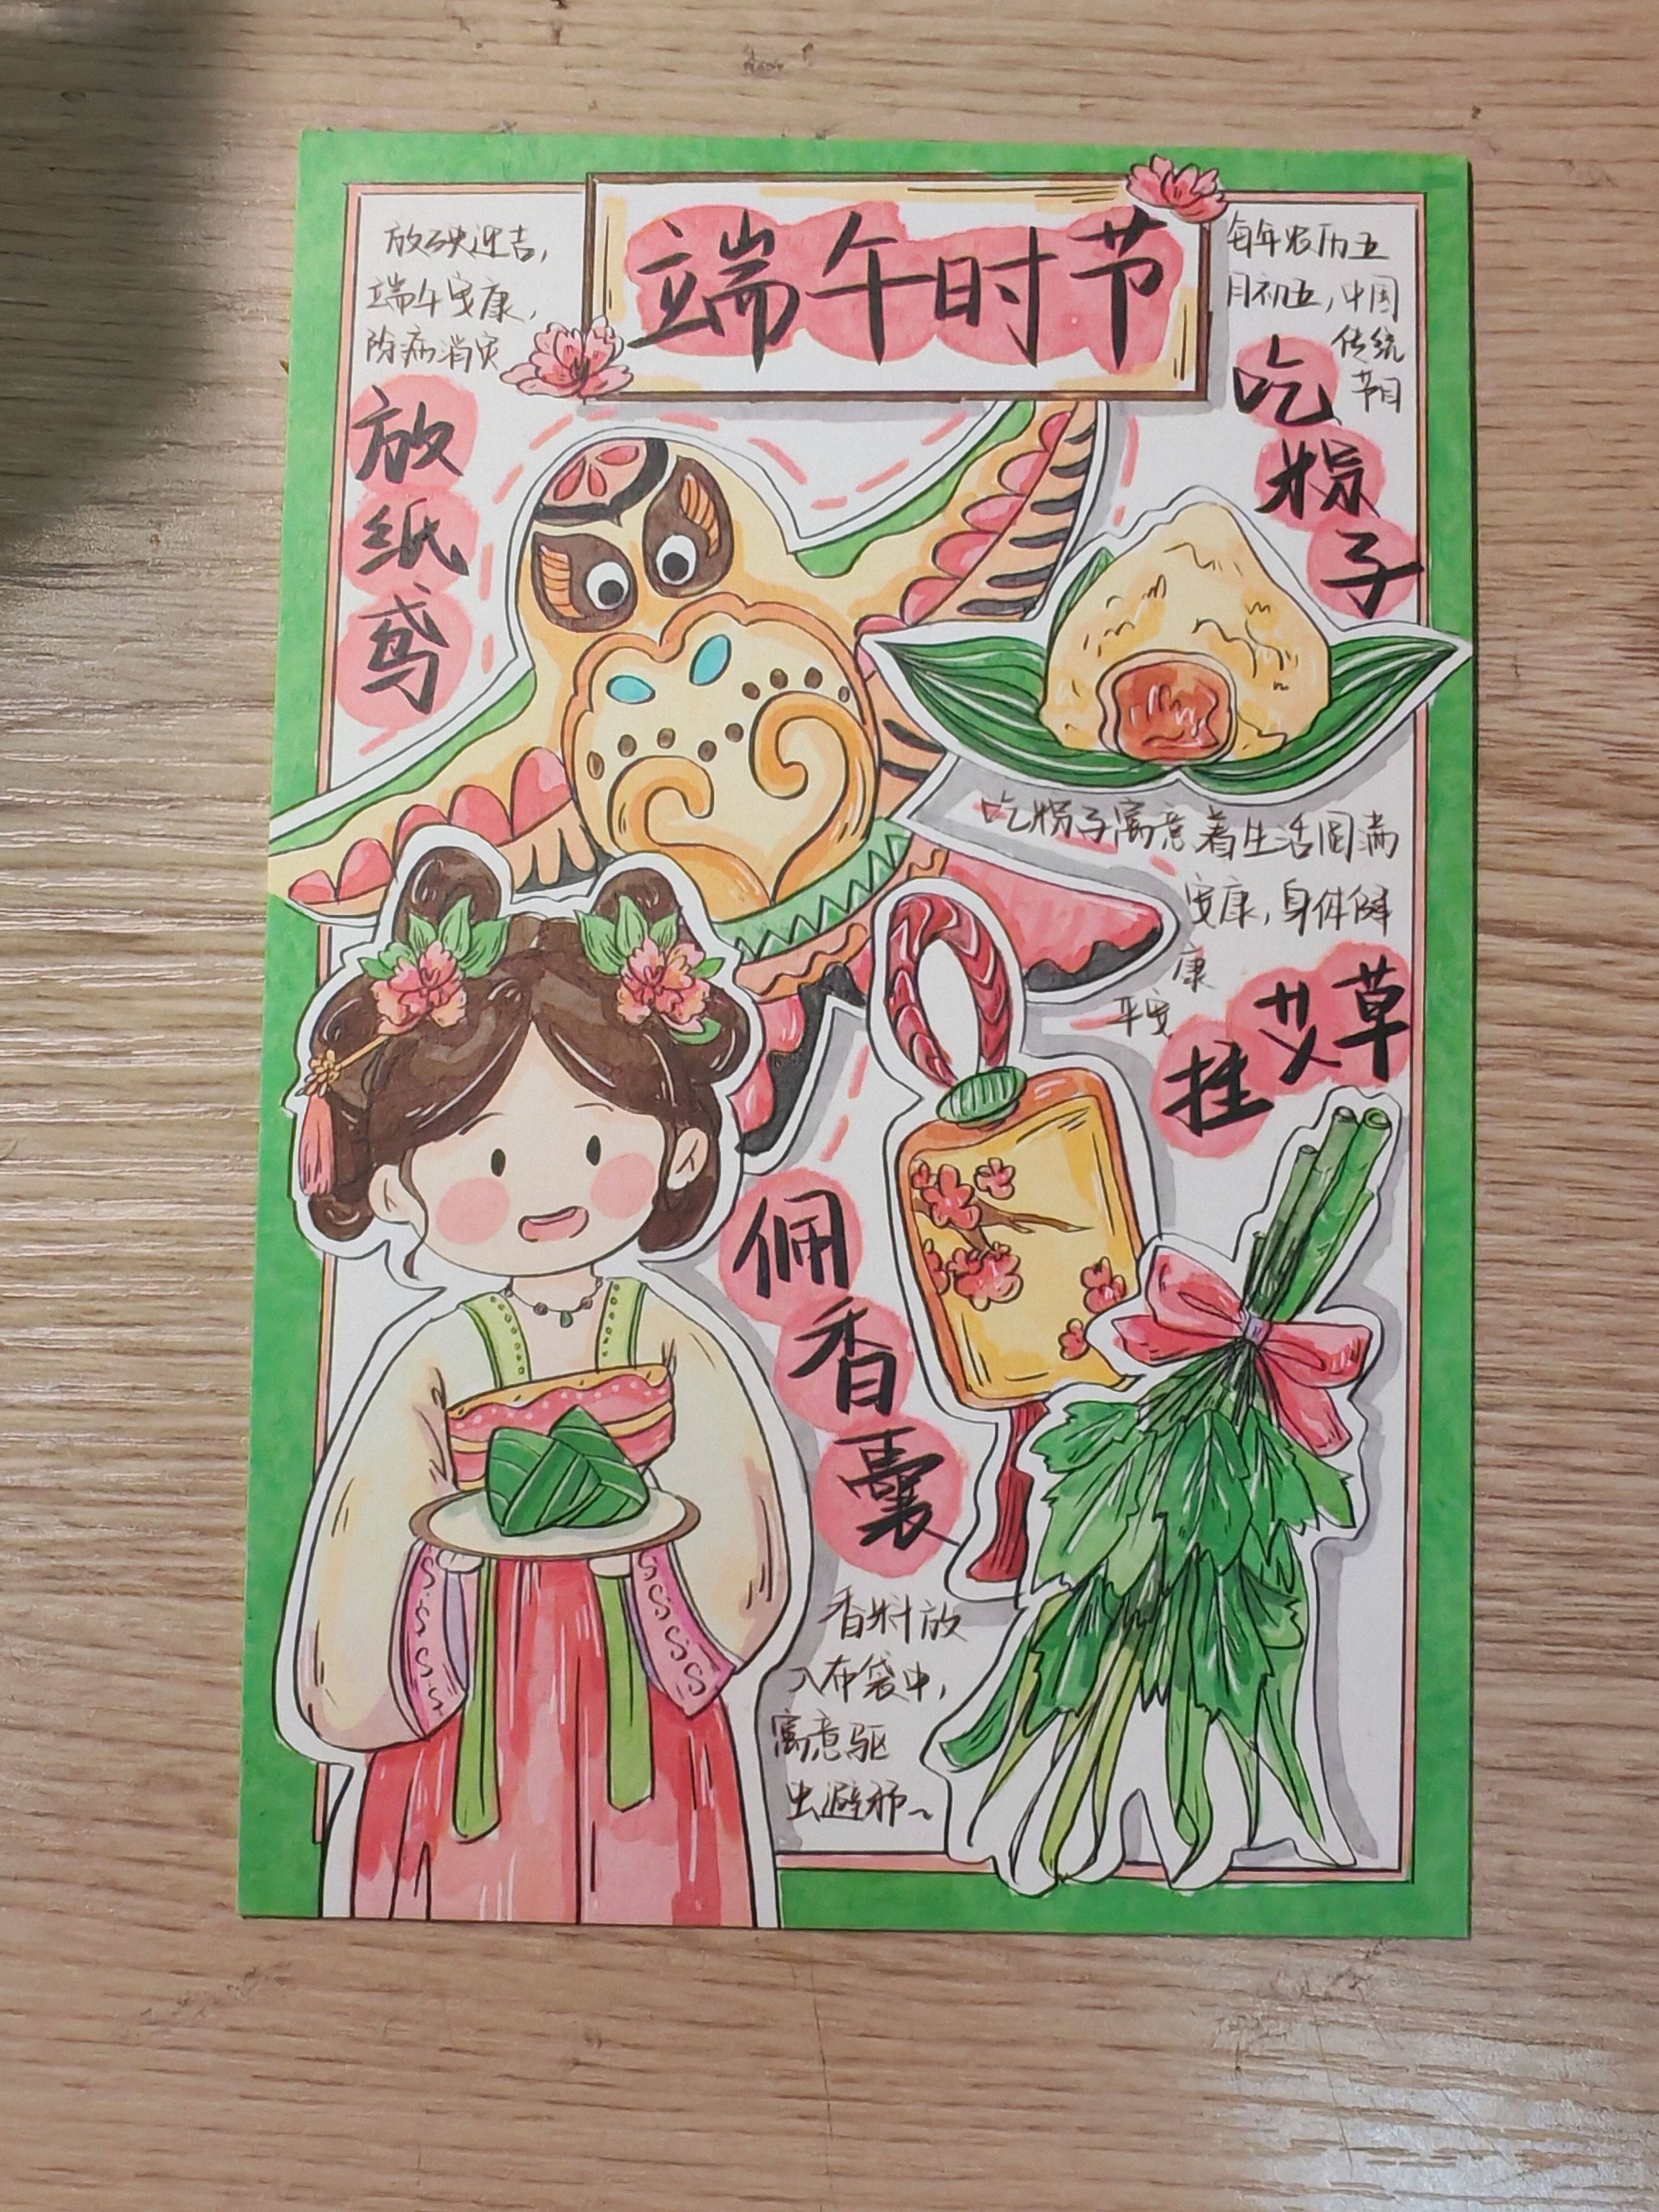 端午时节
放殃迎吉，
端午安康，
除病消灾
放纸鸢
每年农历五
月初五，中国
传统
节日
吃粽子
吃粽子寓意着生活圆满
安康，身体健
康
平安
挂艾草
佩香囊
香料放
入布袋中，
寓意驱
虫避邪~